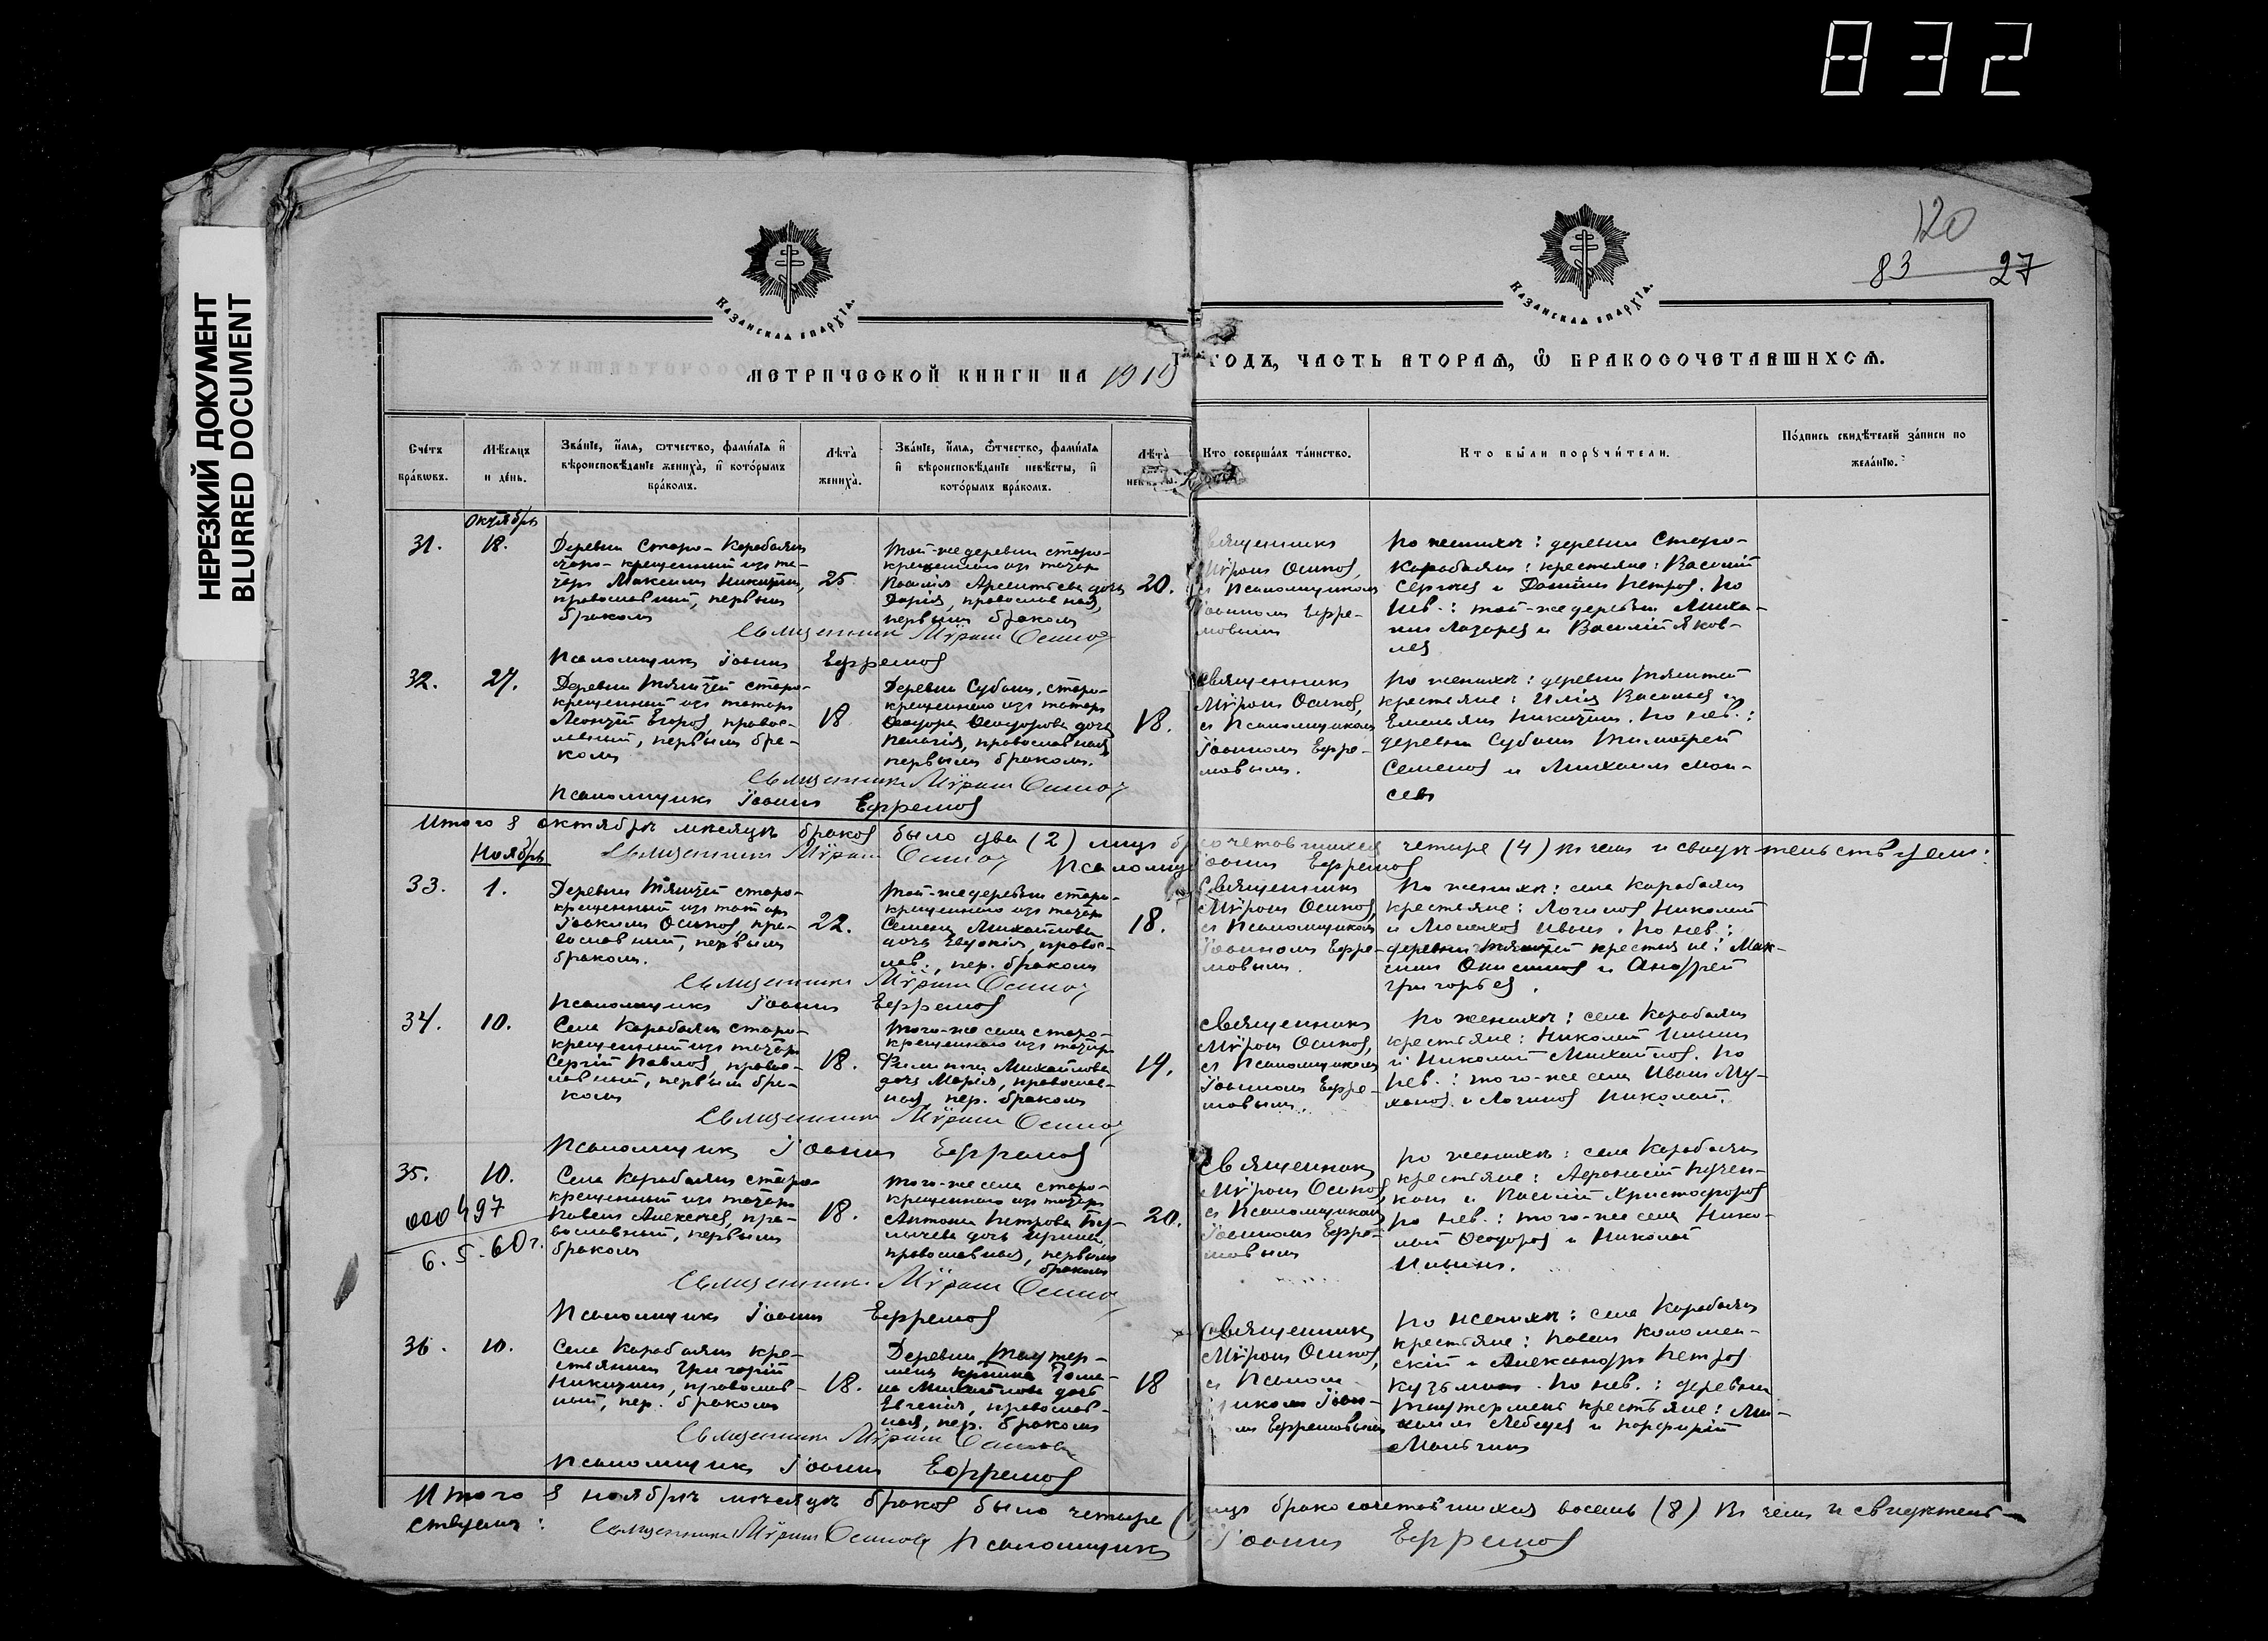 832
НЕРЕЗКИЙ ДОКУМЕНТ
BLURRED DOCUMENT
120
83 27
КАЗАНСКАЯ ЕПАРХІЯ.
КАЗАНСКАЯ ЕПАРХІЯ.
МЕТРИЧЕСКОЙ КНИГИ НА 1915 ГОДЪ, ЧАСТЬ ВТОРАЯ, Ѿ БРАКОСОЧЕТАВШИХСЯ.
Счетъ браковъ.
Мѣсяцъ и день.
Званіе, имя, отчество, фамилія и вѣроисповѣданіе жениха, и которымъ бракомъ.
Лѣта жениха.
Званіе, имя, отчество, фамилія и вѣроисповѣданіе невѣсты, и которымъ бракомъ.
Лѣта
Кто совершалъ таинство.
Кто были поручители.
Подпись свидѣтелей записи по желанію.
Октябрь
31.
18.
Деревни Старо-Карабаянъ
старо-крещенный изъ та-
таръ Максимъ Никитинъ,
православный, первымъ
бракомъ
25
Той-же деревни старо-
крещеннаго изъ татаръ
Василія Арсентьева дочь
Дарія, православная,
первымъ бракомъ
20.
Священникъ
Мѵронъ Осиповъ,
съ Псаломщикомъ
Іоанномъ Ефре-
мовымъ
По женихѣ: деревни Старо-
Карабаянъ: крестьяне: Василій
Сергѣевъ и Даніилъ Петровъ. По
нев.: той-же деревни Миха-
илъ Лазаревъ и Василій Яков-
левъ
Священникъ Мѵронъ Осиповъ
Псаломщикъ Іоаннъ Ефремовъ
32.
27.
Деревни Тямтей старо-
крещенный изъ татаръ
Леонтій Егоровъ, правос-
лавный, первымъ бра-
комъ
18
Деревни Субашъ, старо-
крещеннаго изъ татаръ
Ѳеодора Ѳеодорова дочь
Пелагія, православная,
первымъ бракомъ.
18.
Священникъ
Мѵронъ Осиповъ,
съ Псаломщикомъ
Іоанномъ Ефре-
мовымъ.
По женихѣ: деревни Тямтей
крестьяне: Илія Васильевъ и
Емельянъ Никитинъ. По нев.:
деревни Субашъ Тимофей
Семеновъ и Михаилъ Мои-
сеевъ
Священникъ Мѵронъ Осиповъ
Псаломщикъ Іоаннъ Ефремовъ
Итого въ октябрѣ мѣсяцѣ браковъ было два (2) лицъ бракосочетавшихся четыре (4) въ чемъ и свидѣтельствуемъ:
Священникъ Мѵронъ Осиповъ Псаломщикъ Іоаннъ Ефремовъ
Ноябрь
33.
1.
Деревни Тямтей старо-
крещенный изъ татаръ
Іоакимъ Осиповъ, пра-
вославный, первымъ
бракомъ.
22.
Той-же деревни старо-
крещеннаго изъ татаръ
Семена Михайлова
дочь Евдокія, правос-
лав., пер. бракомъ
18.
Священникъ
Мѵронъ Осиповъ,
съ Псаломщикомъ
Іоанномъ Ефре-
мовымъ.
По женихѣ: села Карабаянъ
крестьяне: Логиновъ Николай
и Иванъ. По нев.:
деревни Тямтей крестьяне: Мак-
симъ Онисимовъ и Андрей
Григорьевъ.
Священникъ Мѵронъ Осиповъ
Псаломщикъ Іоаннъ Ефремовъ
34.
10.
Села Карабаянъ старо-
крещенный изъ татаръ
Сергій Павловъ, правос-
лавный, первымъ бра-
комъ
18.
Того-же села старо-
крещеннаго изъ татаръ
Филиппа Михайлова
дочь Марія, православ-
ная, пер. бракомъ
19.
Священникъ
Мѵронъ Осиповъ,
съ Псаломщикомъ
Іоанномъ Ефре-
мовымъ.
По женихѣ: села Карабаянъ
крестьяне: Николай Ильинъ
и Николай Михайловъ. По
нев.: того-же села Иванъ Му-
хановъ и Логиновъ Николай.
Священникъ Мѵронъ Осиповъ
Псаломщикъ Іоаннъ Ефремовъ
35.
10.
000497
6.5.60г.
Села Карабаянъ старо-
крещенный изъ татаръ
Павелъ Алексѣевъ, пра-
вославный, первымъ
бракомъ
18.
Того-же села старо-
крещеннаго изъ татаръ
Антона Петрова Бу-
лычева дочь Ирина,
православная, первымъ
бракомъ
20.
Священникъ
Мѵронъ Осиповъ
съ Псаломщикомъ
Іоанномъ Ефре-
мовымъ
По женихѣ: села Карабаянъ
крестьяне: Афанасій
и Василій Христофоровъ
По нев.: того-же села Нико-
лай Ѳеодоровъ и Николай
Ильинъ.
Священникъ Мѵронъ Осиповъ
Псаломщикъ Іоаннъ Ефремовъ
36.
10.
Села Карабаянъ кре-
стьянинъ Григорій
Никитинъ, православ-
ный, пер. бракомъ
18.
Деревни Таутер-
мень Рома-
на Михайлова дочь
Евгенія, православ-
ная, пер. бракомъ
18
Священникъ
Мѵронъ Осиповъ,
съ Псалом
щикомъ Іоан-
омъ Ефремовымъ
По женихѣ: села Карабаянъ
крестьяне: Павелъ Коломен-
скій и Александръ Петровъ
Кузьминъ. По нев.: деревни
Таутермень крестьяне: Ми-
хаилъ Лебедевъ и Порфирій
Мальгинъ
Священникъ Мѵронъ Осиповъ
Псаломщикъ Іоаннъ Ефремовъ
Итого въ ноябрѣ мѣсяцѣ браковъ было четыре лицъ бракосочетавшихся восемь (8) въ чемъ и свидѣтель-
ствуемъ: Священникъ Мѵронъ Осиповъ Псаломщикъ Іоаннъ Ефремовъ